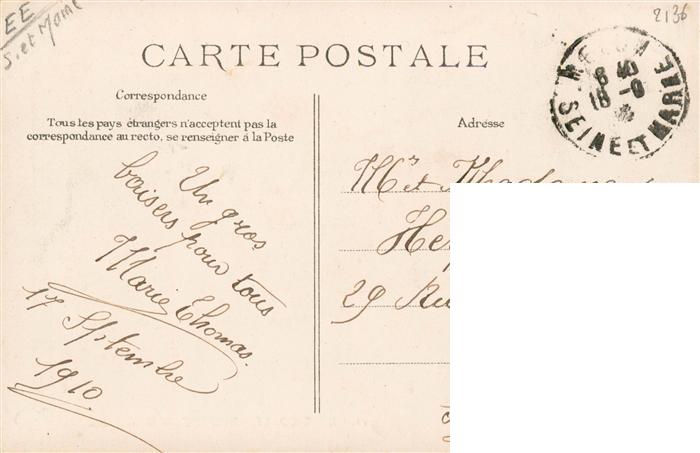 EE
S. et Marne
2136
CARTE POSTALE
Correspondance
Tous les pays étrangers n'acceptent pas la
correspondance au recto, se renseigner à la Poste
Adresse
MELUN
18 -9
SEINE ET MARNE
Un gros
baisers pour tous
Marie Thomas.
17 Septembre
1910
Mr et Madame
29 Rue